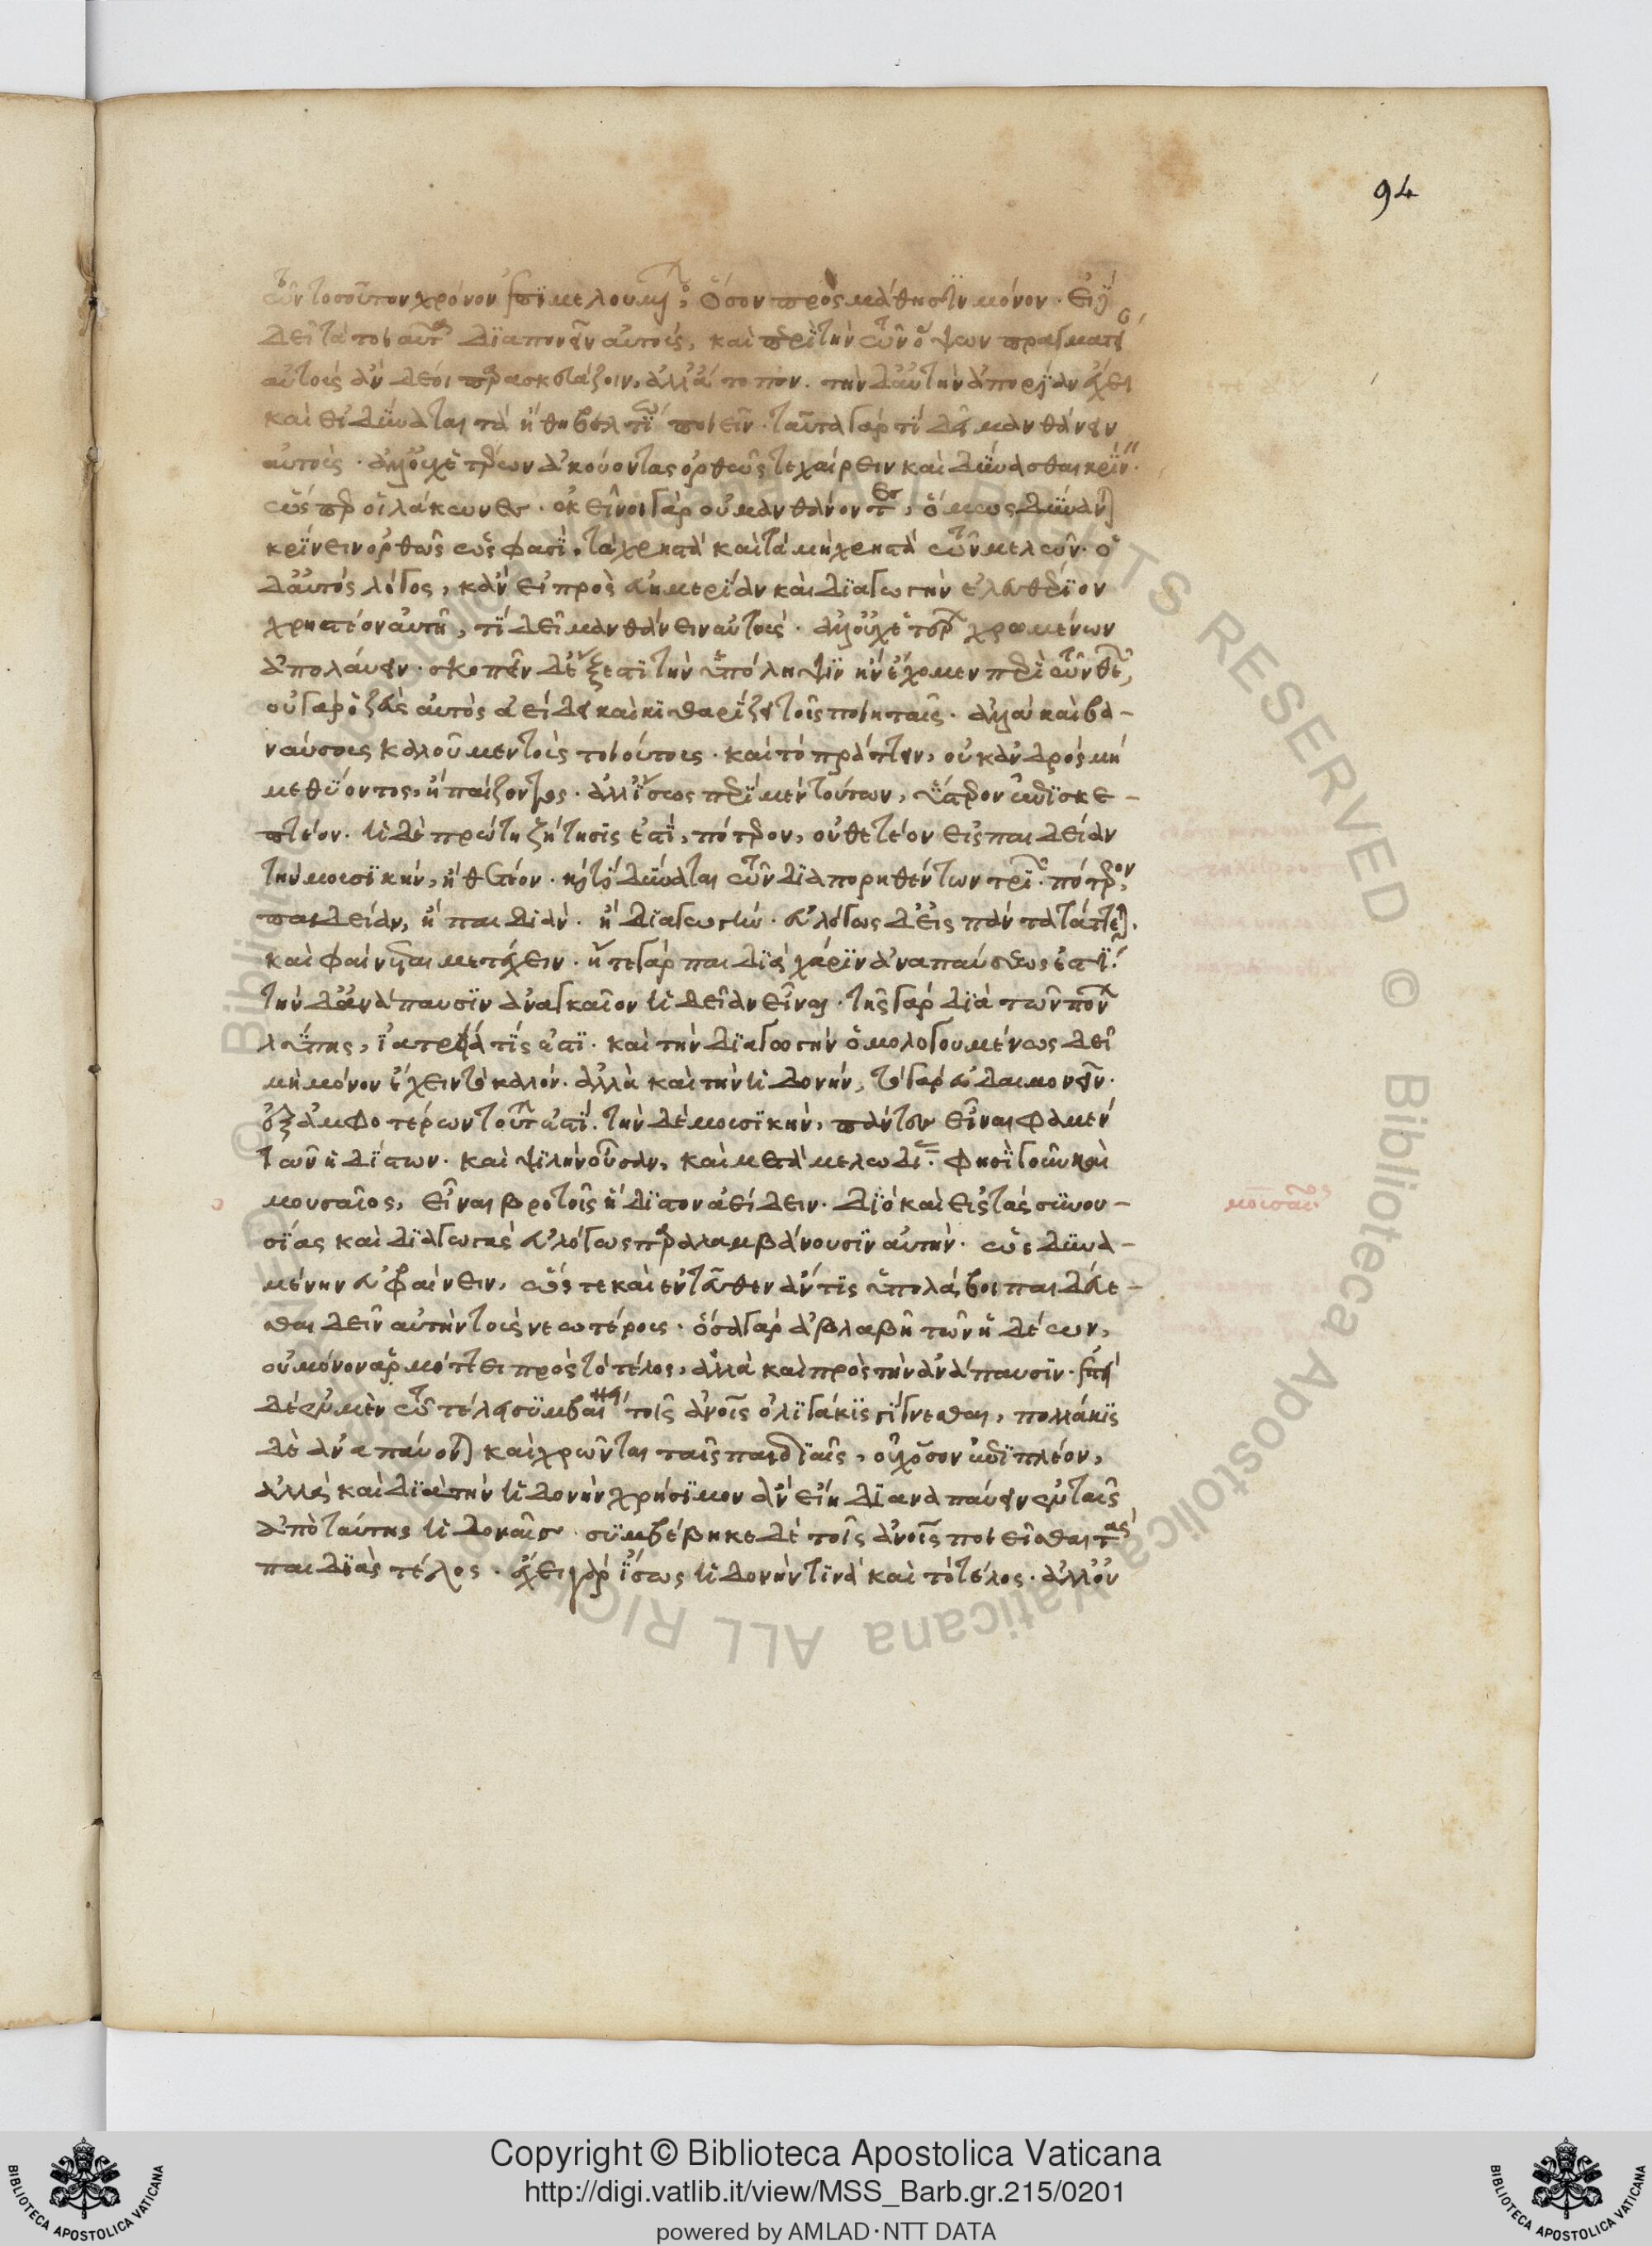 τῶν τοσοῦτον χρόνον ἐπιμελουμένων, ὅσον πρὸς μάθησιν μόνον. εἰ γὰρ
δεῖ τὰ τοιαῦτα διαπονεῖν αὐτοὺς, καὶ περὶ τὴν τῶν ὄψων πραγματείαν
αὐτοὺς ἂν δέοι παρασκευάζειν, ἀλλ' ἄτοπον. τὴν δ' αὐτὴν ἀπορίαν ἔχει
καὶ εἰ δύναται τὰ ἤθη βελτίω ποιεῖν. ταῦτα γὰρ τί δεῖ μανθάνειν
αὐτοὺς. ἀλλ' οὐχ ἑτέρων ἀκούοντας ὀρθῶς τε χαίρειν καὶ δύνασθαι κρίνειν.
ὥσπερ οἱ λάκωνες. ἐκεῖνοι γὰρ οὐ μανθάνοντες, ὅμως δύνανται
κρίνειν ὀρθῶς ὥς φασι. τὰ χρηστὰ καὶ τὰ μὴ χρηστὰ τῶν μελῶν. ὁ
δ' αὐτὸς λόγος, κἂν εἰ πρὸς εὐημερίαν καὶ διαγωγὴν ἐλευθέριον
χρηστέον αὐτῇ, τί δεῖ μανθάνειν αὐτοὺς. ἀλλ' οὐχ ἑτέρων χρωμένων
ἀπολαύειν. σκοπεῖν δ' ἔξεστι τὴν ὑπόληψιν ἣν ἔχομεν περὶ τῶν θεῶν,
οὐ γὰρ ὁ ζεὺς αὐτὸς ἀείδει καὶ κιθαρίζει τοῖς ποιηταῖς. ἀλλὰ καὶ βα-
ναύσους καλοῦμεν τοὺς τοιούτους. καὶ τὸ πράττειν, οὐκ ἀνδρὸς μὴ
μεθύοντος, ἢ παίζοντος. ἀλλ' ἴσως περὶ μὲν τούτων, ὕστερον ἐπισκε-
πτέον. ἡ δὲ πρώτη ζήτησις ἐστὶ, πότερον, οὐ θετέον εἰς παιδείαν
τὴν μουσικὴν, ἢ θετέον. καὶ τί δύναται τῶν διαπορηθέντων τριῶν. πότερον,
παιδείαν, ἢ παιδιὰν. ἢ διαγωγὴν. εὐλόγως δ' εἰς πάντα τάττεται.
καὶ φαίνεται μετέχειν. ἥ τε γὰρ παιδιὰ χάριν ἀναπαύσεως ἐστὶ.
τὴν δ' ἀνάπαυσιν ἀναγκαῖον ἡδεῖαν εἶναι. τῆς γὰρ διὰ τῶν πόνων
λύπης, ἰατρεία τίς ἐστι. καὶ τὴν διαγωγὴν ὁμολογουμένως δεῖ
μὴ μόνον ἔχειν τὸ καλόν. ἀλλὰ καὶ τὴν ἡδονὴν, τὸ γὰρ εὐδαιμονεῖν.
ἐξ ἀμφοτέρων τούτων ἐστὶ. τὴν δὲ μουσικὴν, πάντες εἶναι φαμὲν
τῶν ἡδίστων. καὶ ψιλὴν οὖσαν, καὶ μετὰ μελωδίας. φησὶ γοῦν καὶ
μουσαῖος, εἶναι βροτοῖς ἥδιστον ἀείδειν. διὸ καὶ εἰς τὰς συνου-
σίας καὶ διαγωγὰς εὐλόγως παραλαμβάνουσιν αὐτὴν. ὡς δυνα-
μένην εὐφραίνειν, ὥστε καὶ ἐντεῦθεν ἄν τις ὑπολάβοι παιδεύε-
σθαι δεῖν αὐτὴν τοὺς νεωτέρους. ὅσα γὰρ ἀβλαβῆ τῶν ἡδέων,
οὐ μόνον ἁρμόττει πρὸς τὸ τέλος, ἀλλὰ καὶ πρὸς τὴν ἀνάπαυσιν. ἐπεὶ
δ' ἐν μὲν τῷ τέλει συμβαίνει τοῖς ἀνθρώποις ὀλιγάκις γίγνεσθαι, πολλάκις
δὲ ἀναπαύονται καὶ χρῶνται ταῖς παιδιαῖς, οὐχ ὅσον ἐπὶ πλέον,
ἀλλὰ καὶ διὰ τὴν ἡδονὴν χρήσιμον ἂν εἴη διαναπαύειν ἐν ταῖς
ἀπὸ ταύτης ἡδοναῖς. συμβέβηκε δὲ τοῖς ἀνθρώποις ποιεῖσθαι τὰς
παιδιὰς τέλος. ἔχει γὰρ ἴσως ἡδονήν τινα καὶ τὸ τέλος. ἀλλ' οὐ
94
μουσαῖος
Copyright © Biblioteca Apostolica Vaticana
http://digi.vatlib.it/view/MSS_Barb.gr.215/0201
powered by AMLAD·NTT DATA
BIBLIOTECA APOSTOLICA VATICANA
BIBLIOTECA APOSTOLICA VATICANA
© Biblioteca Apostolica Vaticana ALL RIGHTS RESERVED